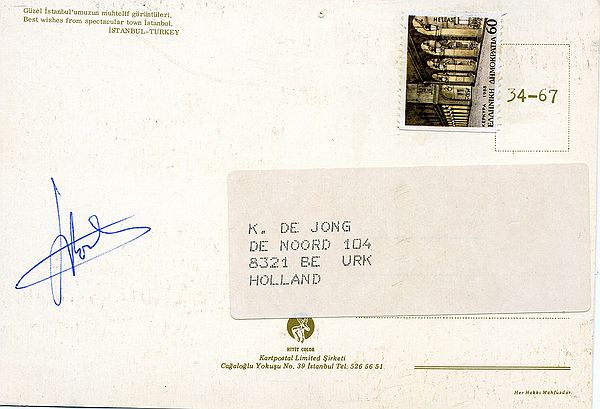 Güzel İstanbul'umuzun muhtelif görüntüleri.
Best wishes from spectacular town İstanbul.
İSTANBUL-TURKEY
HELLAS
60
ΕΛΛΗΝΙΚΗ ΔΗΜΟΚΡΑΤΙΑ
ΚΕΡΚΥΡΑ 1988
34-67
K. DE JONG
DE NOORD 104
8321 BE URK
HOLLAND
HİTİT COLOR
Kartpostal Limited Şirketi
Cağaloğlu Yokuşu No. 39 İstanbul Tel. 526 56 51
Her Hakkı Mahfuzdur.